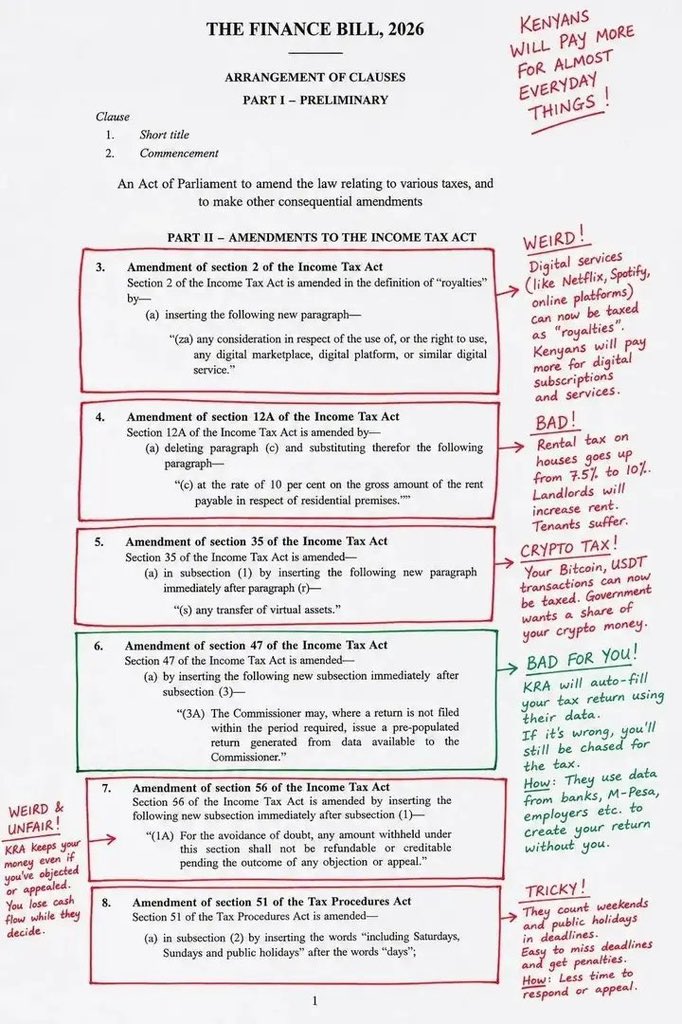 THE FINANCE BILL, 2026
ARRANGEMENT OF CLAUSES
PART I – PRELIMINARY
Clause
1. Short title
2. Commencement
An Act of Parliament to amend the law relating to various taxes, and
to make other consequential amendments
KENYANS
WILL PAY MORE
FOR ALMOST
EVERYDAY
THINGS!
PART II – AMENDMENTS TO THE INCOME TAX ACT
3. Amendment of section 2 of the Income Tax Act
Section 2 of the Income Tax Act is amended in the definition of “royalties”
by—
(a) inserting the following new paragraph—
“(za) any consideration in respect of the use of, or the right to use,
any digital marketplace, digital platform, or similar digital
service.”
WEIRD!
Digital services
(like Netflix, Spotify,
online platforms)
can now be taxed
as "royalties".
Kenyans will pay
more for digital
subscriptions
and services.
4. Amendment of section 12A of the Income Tax Act
Section 12A of the Income Tax Act is amended by—
(a) deleting paragraph (c) and substituting therefor the following
paragraph—
“(c) at the rate of 10 per cent on the gross amount of the rent
payable in respect of residential premises.””
BAD!
Rental tax on
houses goes up
from 7.5% to 10%.
Landlords will
increase rent.
Tenants suffer.
5. Amendment of section 35 of the Income Tax Act
Section 35 of the Income Tax Act is amended—
(a) in subsection (1) by inserting the following new paragraph
immediately after paragraph (r)—
“(s) any transfer of virtual assets.”
CRYPTO TAX!
Your Bitcoin, USDT
transactions can now
be taxed. Government
wants a share of
your crypto money.
6. Amendment of section 47 of the Income Tax Act
Section 47 of the Income Tax Act is amended—
(a) by inserting the following new subsection immediately after
subsection (3)—
“(3A) The Commissioner may, where a return is not filed
within the period required, issue a pre-populated
return generated from data available to the
Commissioner.”
BAD FOR YOU!
KRA will auto-fill
your tax return using
their data.
If it's wrong, you'll
still be chased for
the tax.
How: They use data
from banks, M-Pesa,
employers etc. to
create your return
without you.
7. Amendment of section 56 of the Income Tax Act
Section 56 of the Income Tax Act is amended by inserting the
following new subsection immediately after subsection (1)—
“(1A) For the avoidance of doubt, any amount withheld under
this section shall not be refundable or creditable
pending the outcome of any objection or appeal.”
WEIRD &
UNFAIR!
KRA keeps your
money even if
you've objected
or appealed.
You lose cash
flow while they
decide.
8. Amendment of section 51 of the Tax Procedures Act
Section 51 of the Tax Procedures Act is amended—
(a) in subsection (2) by inserting the words “including Saturdays,
Sundays and public holidays” after the word “days”;
TRICKY!
They count weekends
and public holidays
in deadlines.
Easy to miss deadlines
and get penalties.
How: Less time to
respond or appeal.
1